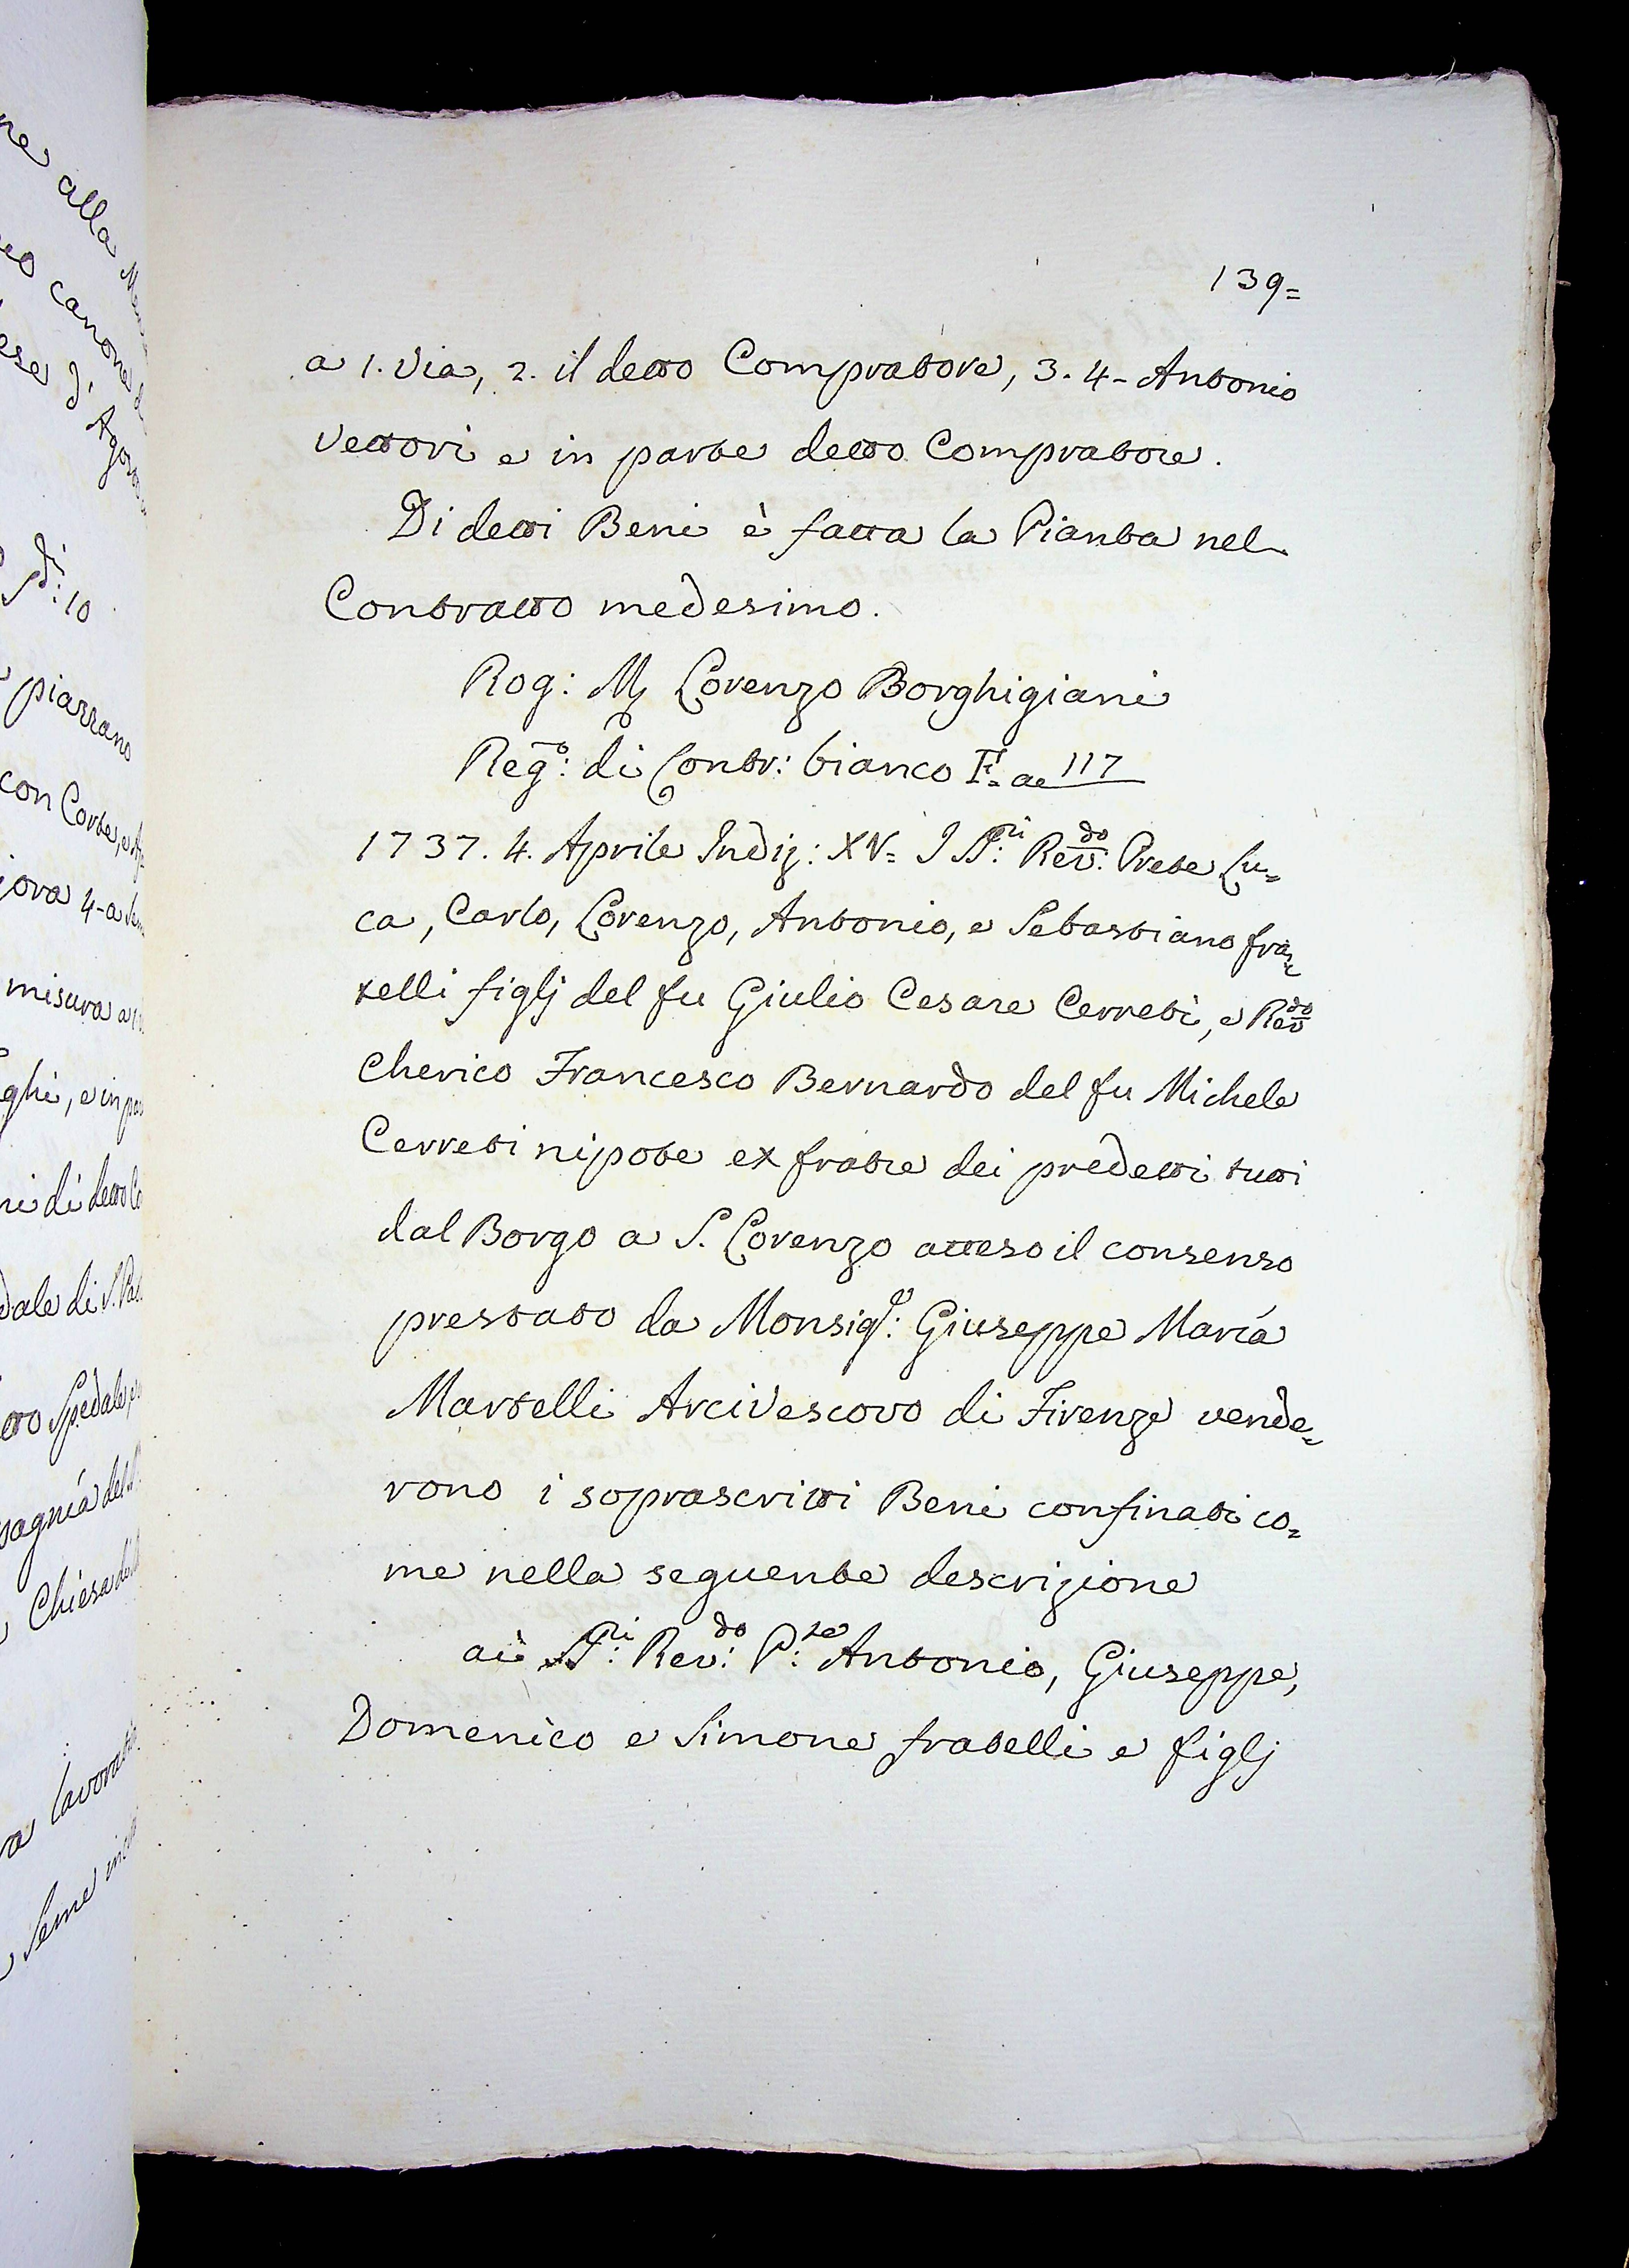 ne alla
canone
ese d' Agos
139=
a 1. Via, 2. il detto Compratore, 3. 4- Antonio
Vettori e in parte detto Compratore.
Di detti Beni è fatta la Pianta nel
Contratto medesimo.
Rog: M Lorenzo Borghigiani
Reg.º: di Contr: bianco F. ac 117
1737. 4. Aprile Indiz: XV= I SS:ri Rev:do Prete Lu=
ca, Carlo, Lorenzo, Antonio, e Sebastiano fra=
telli figlj del fu Giulio Cesare Cerreti, e Revdo
Cherico Francesco Bernardo del fu Michele
Cerreti nipote ex fratre dei predetti tutti
dal Borgo a S. Lorenzo atteso il consenso
prestato da Monsig:e Giuseppe Maria
Martelli Arcivescovo di Firenze vende=
rono i soprascritti Beni confinati co=
me nella seguente descrizione
ai SS:ri Rev:do P:te Antonio, Giuseppe,
Domenico e Simone fratelli e figlj
10
piazzano
con Corte, e
misura a
ghi, e in
ni di detto
dale di S.
Spedale
pagnia del
Chiesa
lavorat
Seme